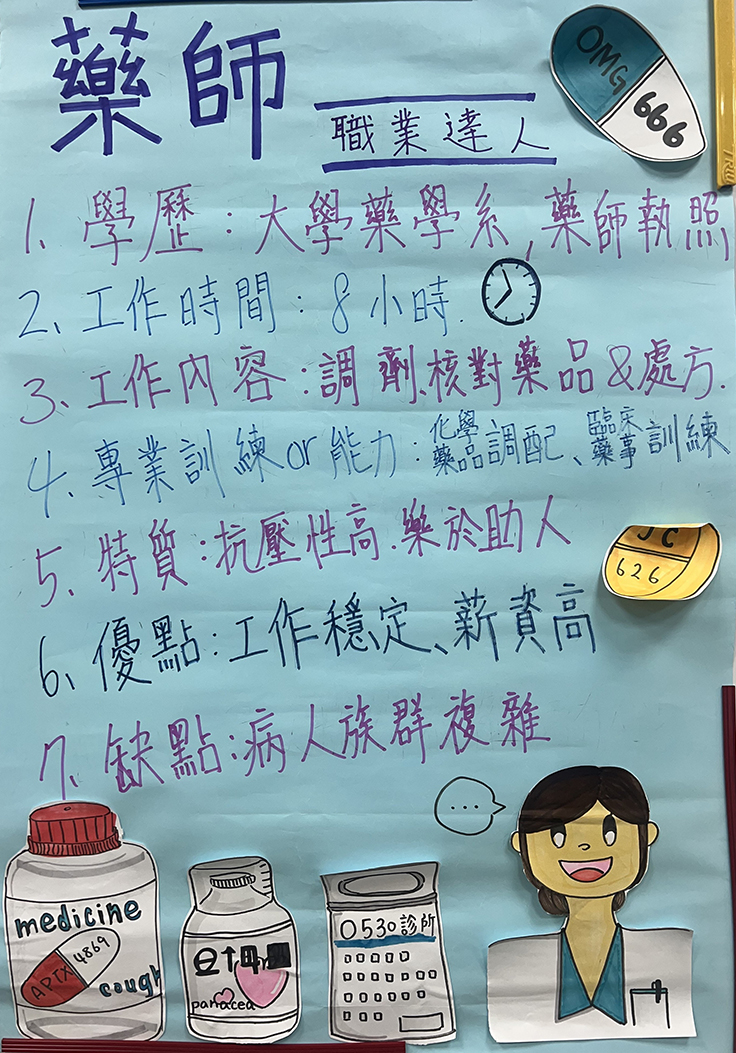 藥師
職業達人
OMG
666
1. 學歷：大學藥學系,藥師執照
2、工作時間：8小時.
3、工作內容：調劑、核對藥品&處方.
4、專業訓練or能力：化學藥品調配、臨床藥事訓練
5、特質：抗壓性高.樂於助人
JC
626
6、優點：工作穩定、薪資高
7、缺點：病人族群複雜
...
medicine
APTX 4869
cough
panacea
0530診所